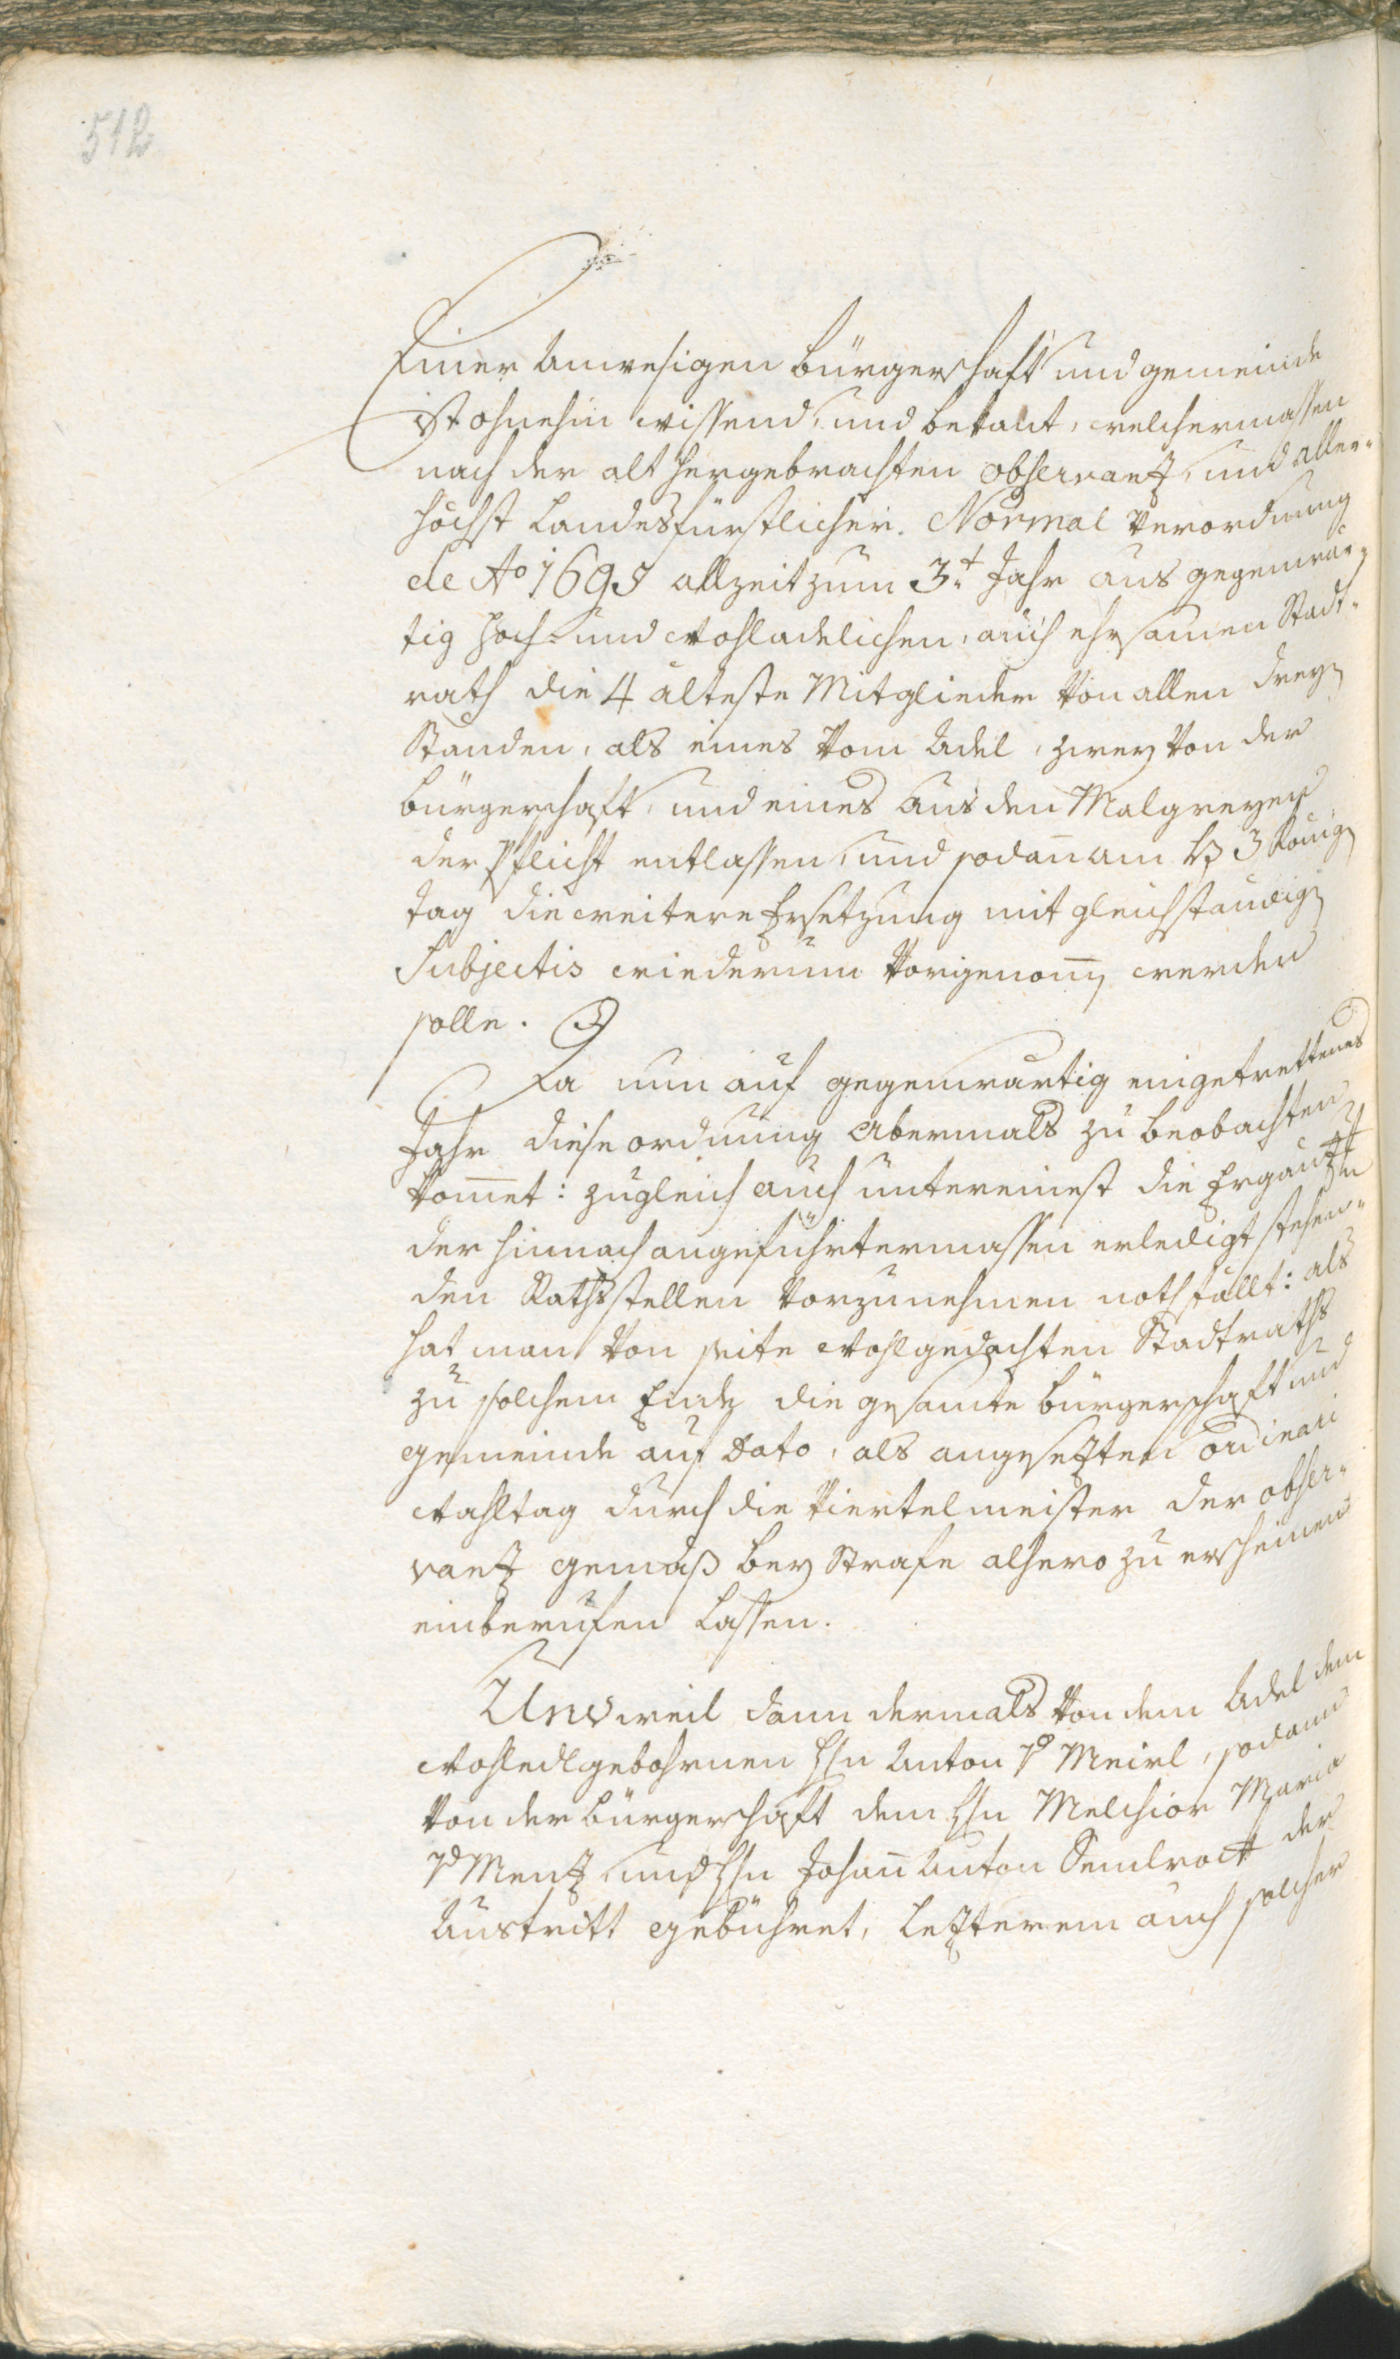 512
Einer Anwesigen bürgerschaft und gemeinde
ist ohnehin wissend, und bekant, welchermassen
nach der alt hergebrachten observantz, und aller-
höchst Landesfürstlicher Normal verordnung
de Ao 1695 allzeit zum 3.t Jahr aus gegenwär-
tig hoch- und wohladelichen, auch ehrsamen Stadt-
rath die 4 älteste Mitglieder von allen drey
Standen, als eines vom Adel, zwey von der
bürgerschaft, und eines aus den Malgreyen
der Pflicht entlassen, und sodan̄ am 3 König
tag die weitere Ersetzung mit gleichständig
Subjectis wiederum vorgenom̄ werden
solle.
Da nun auf gegenwärtig eingetrettenes
Jahr diese ordnung abermals zu beobachten
kom̄et: zugleich auch untereinest die Ergäntz
der hinnach angeführtermassen erledigt stehen-
den Rathsstellen vorzunehmen nothfällt: als
hat man von seite wohlgedachten Stadtraths
zu solchem Ende die gesamte bürgerschaft und
gemeinde auf dato, als angesetzten ordinari
wahltag durch die viertelmeister der obser-
vantz gemäß bey Strafe alhero zu erscheinen
einberufen lassen.
Und weil dann dermals von dem Adel dem
wohledlgebohrnen Hn Anton v Meirl, sodann
von der bürgerschaft dem Hn Melchior Maria
v Mentz, und Hn Johan̄ Anton Sendroit der
Austritt gebühret, letzterem auch solcher